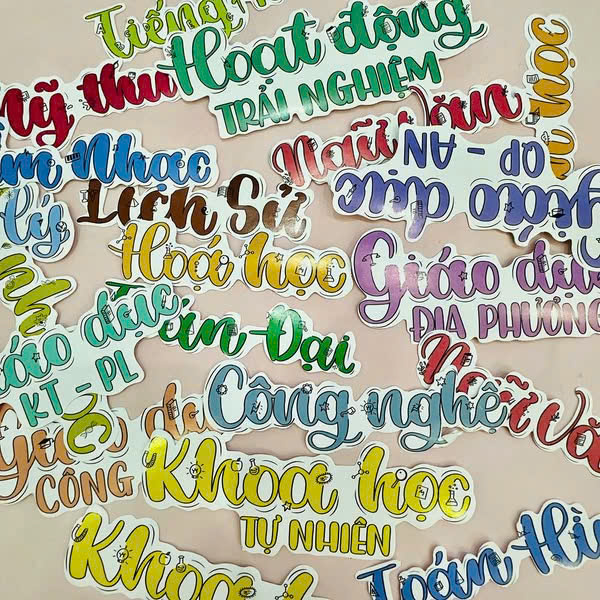 Tiếng
Hoạt động
TRẢI NGHIỆM
Mỹ thu
học
Ngữ văn
Âm Nhạc
giáo dục
QP - AN
lý
Lịch Sử
Hoá học
Giáo dục
ĐỊA PHƯƠNG
nh
Toán-Đại
giáo dục
KT - PL
Ngữ Vă
Công nghệ
Giáo dục
CÔNG
Khoa học
TỰ NHIÊN
Khoa h
Toán Hìn